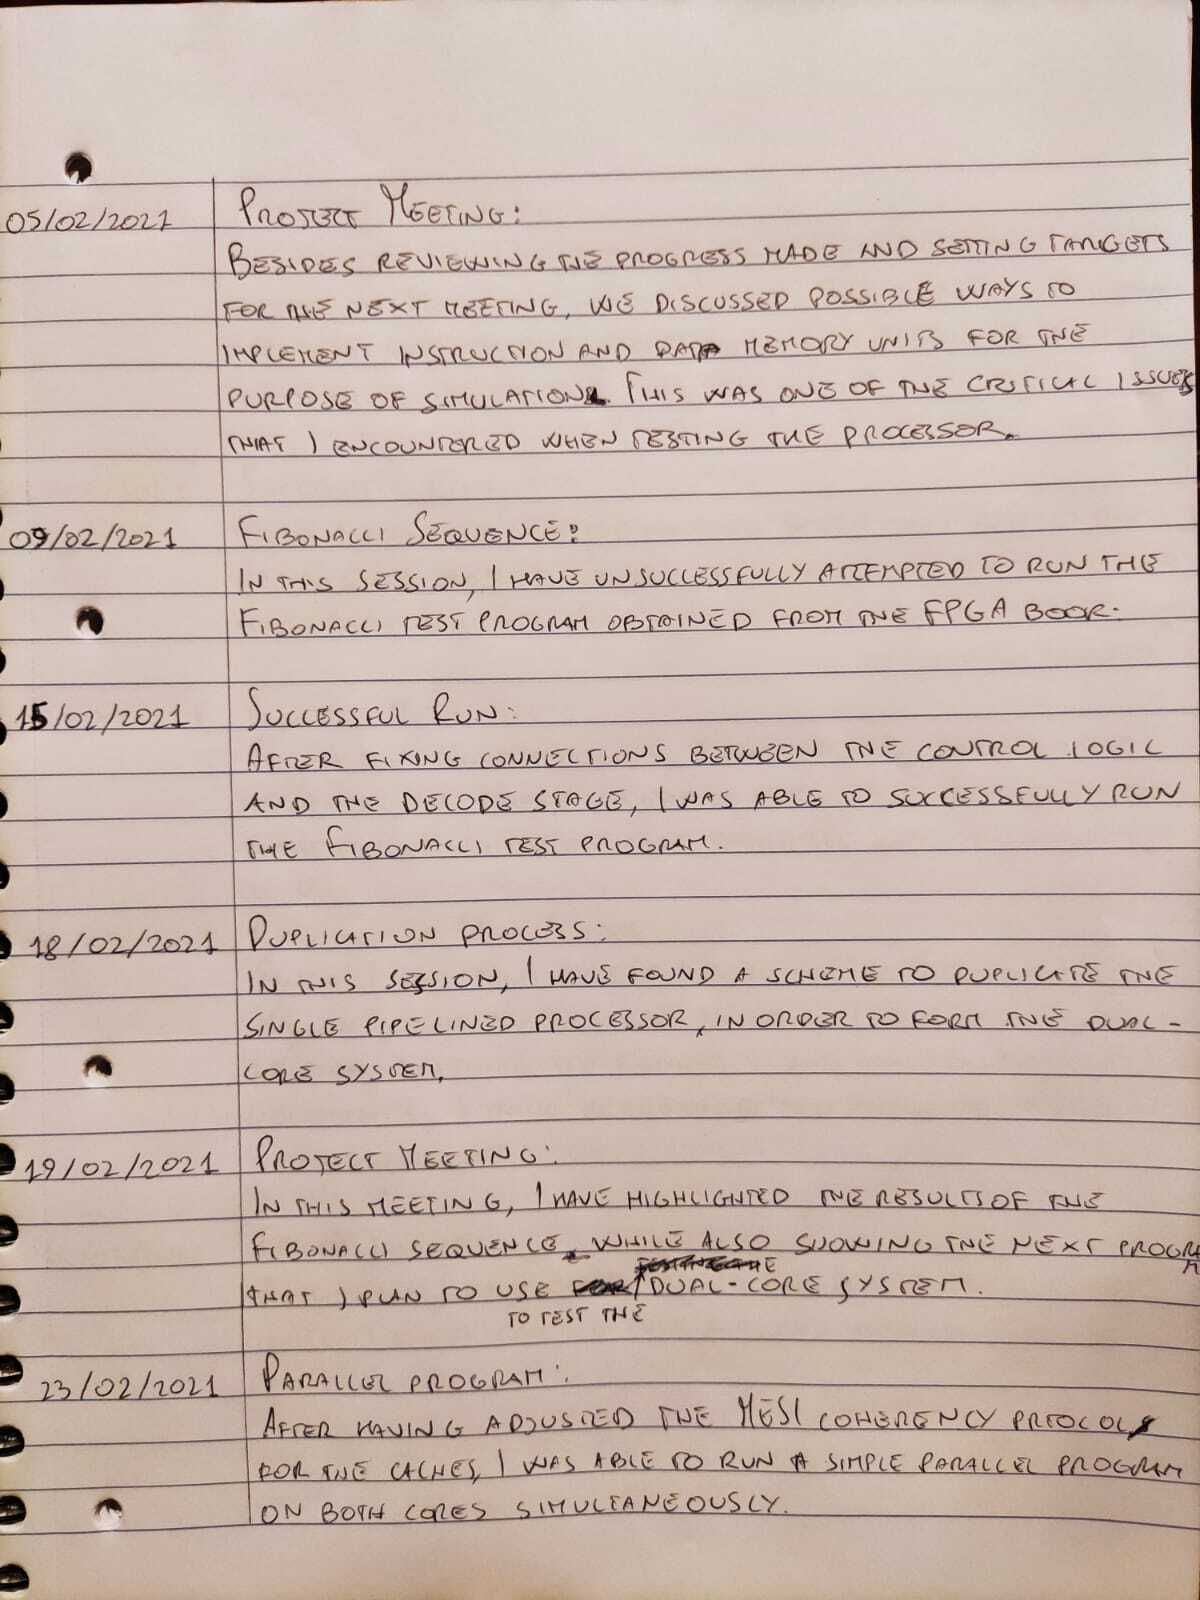 05/02/2021 PROJECT MEETING:
BESIDES REVIEWING THE PROGRESS MADE AND SETTING TARGETS
FOR THE NEXT MEETING, WE DISCUSSED POSSIBLE WAYS TO
IMPLEMENT INSTRUCTION AND DATA MEMORY UNITS FOR THE
PURPOSE OF SIMULATION. THIS WAS ONE OF THE CRITICAL ISSUES
THAT I ENCOUNTERED WHEN TESTING THE PROCESSOR.
09/02/2021 FIBONACCI SEQUENCE:
IN THIS SESSION, I HAVE UNSUCCESSFULLY ATTEMPTED TO RUN THE
FIBONACCI TEST PROGRAM OBTAINED FROM THE FPGA BOOK.
15/02/2021 SUCCESSFUL RUN:
AFTER FIXING CONNECTIONS BETWEEN THE CONTROL LOGIC
AND THE DECODE STAGE, I WAS ABLE TO SUCCESSFULLY RUN
THE FIBONACCI TEST PROGRAM.
18/02/2021 DUPLICATION PROCESS:
IN THIS SESSION, I HAVE FOUND A SCHEME TO DUPLICATE THE
SINGLE PIPELINED PROCESSOR, IN ORDER TO FORM THE DUAL-
CORE SYSTEM.
19/02/2021 PROJECT MEETING:
IN THIS MEETING, I HAVE HIGHLIGHTED THE RESULTS OF THE
FIBONACCI SEQUENCE, WHILE ALSO SHOWING THE NEXT PROGRAM
THAT I PLAN TO USE DUAL-CORE SYSTEM.
TO TEST THE
23/02/2021 PARALLEL PROGRAM:
AFTER HAVING ADJUSTED THE MESI COHERENCY PRTOCOL
FOR THE CACHES, I WAS ABLE TO RUN A SIMPLE PARALLEL PROGRAM
ON BOTH CORES SIMULTANEOUSLY.